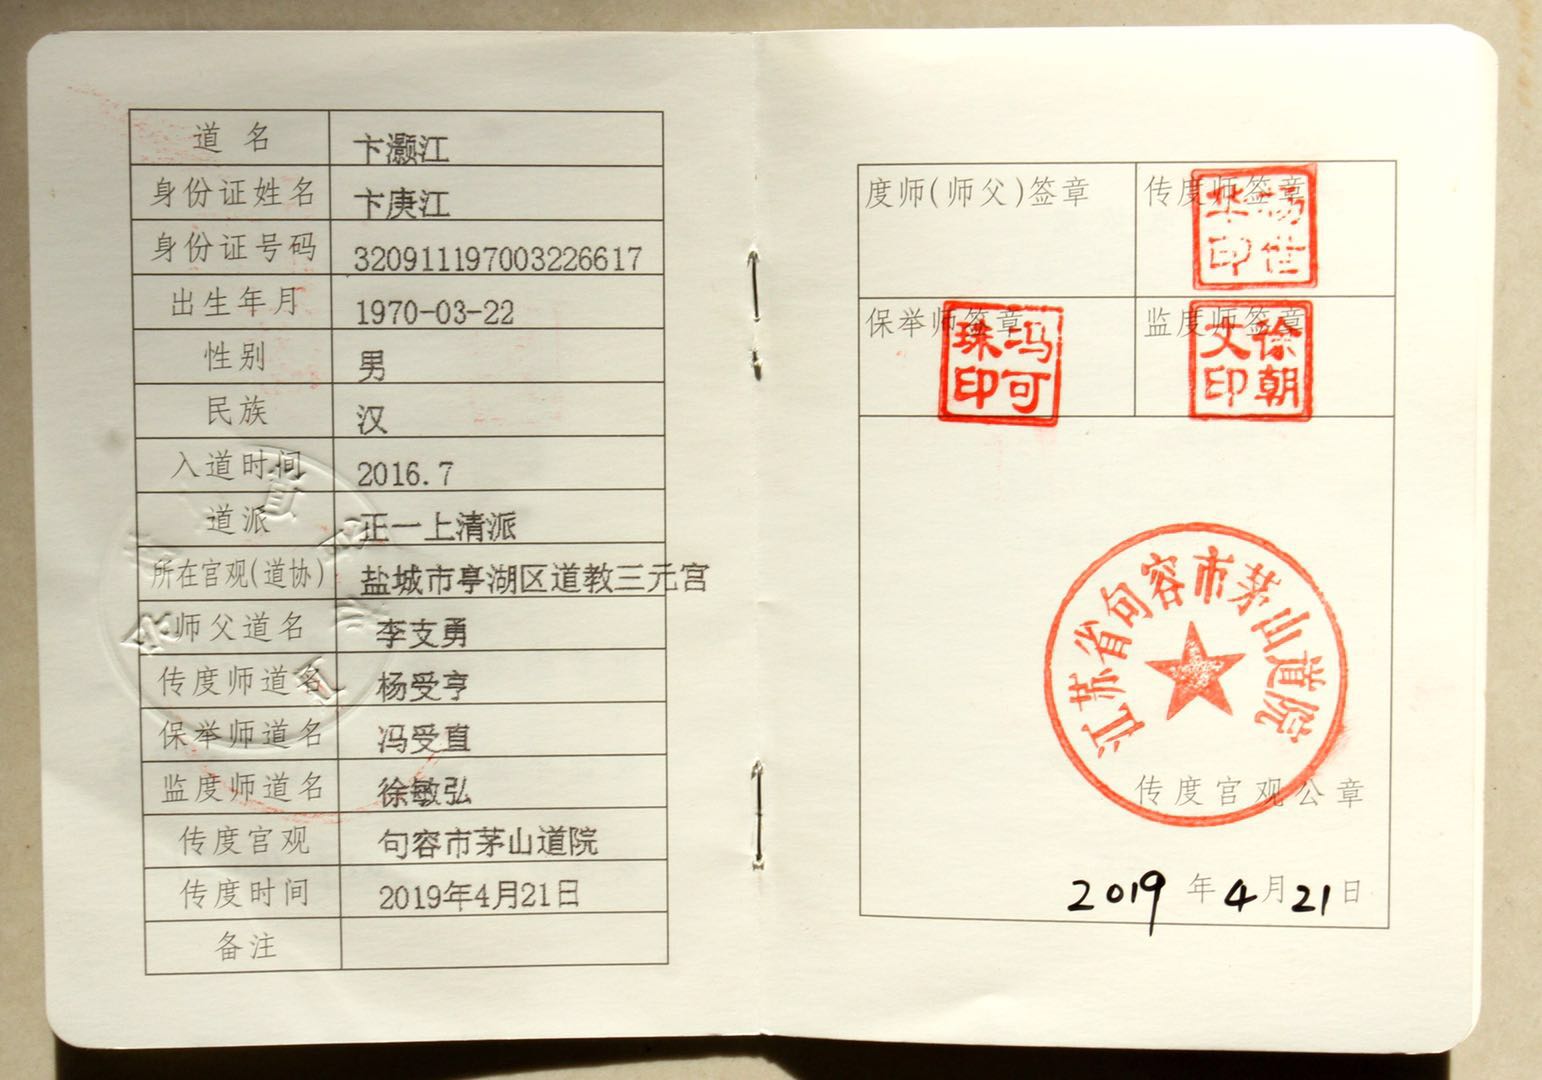 道名 卞灏江
身份证姓名 卞庚江
身份证号码 320911197003226617
出生年月 1970-03-22
性别 男
民族 汉
入道时间 2016.7
道派 正一上清派
所在宫观(道协) 盐城市亭湖区道教三元宫
师父道名 李支勇
传度师道名 杨受亨
保举师道名 冯受直
监度师道名 徐敏弘
传度宫观 句容市茅山道院
传度时间 2019年4月21日
备注
度师(师父)签章 传度师签章
杨世华印
保举师签章 监度师签章
冯可珠印 徐朝文印
江苏省句容市茅山道院
传度宫观公章
2019年4月21日